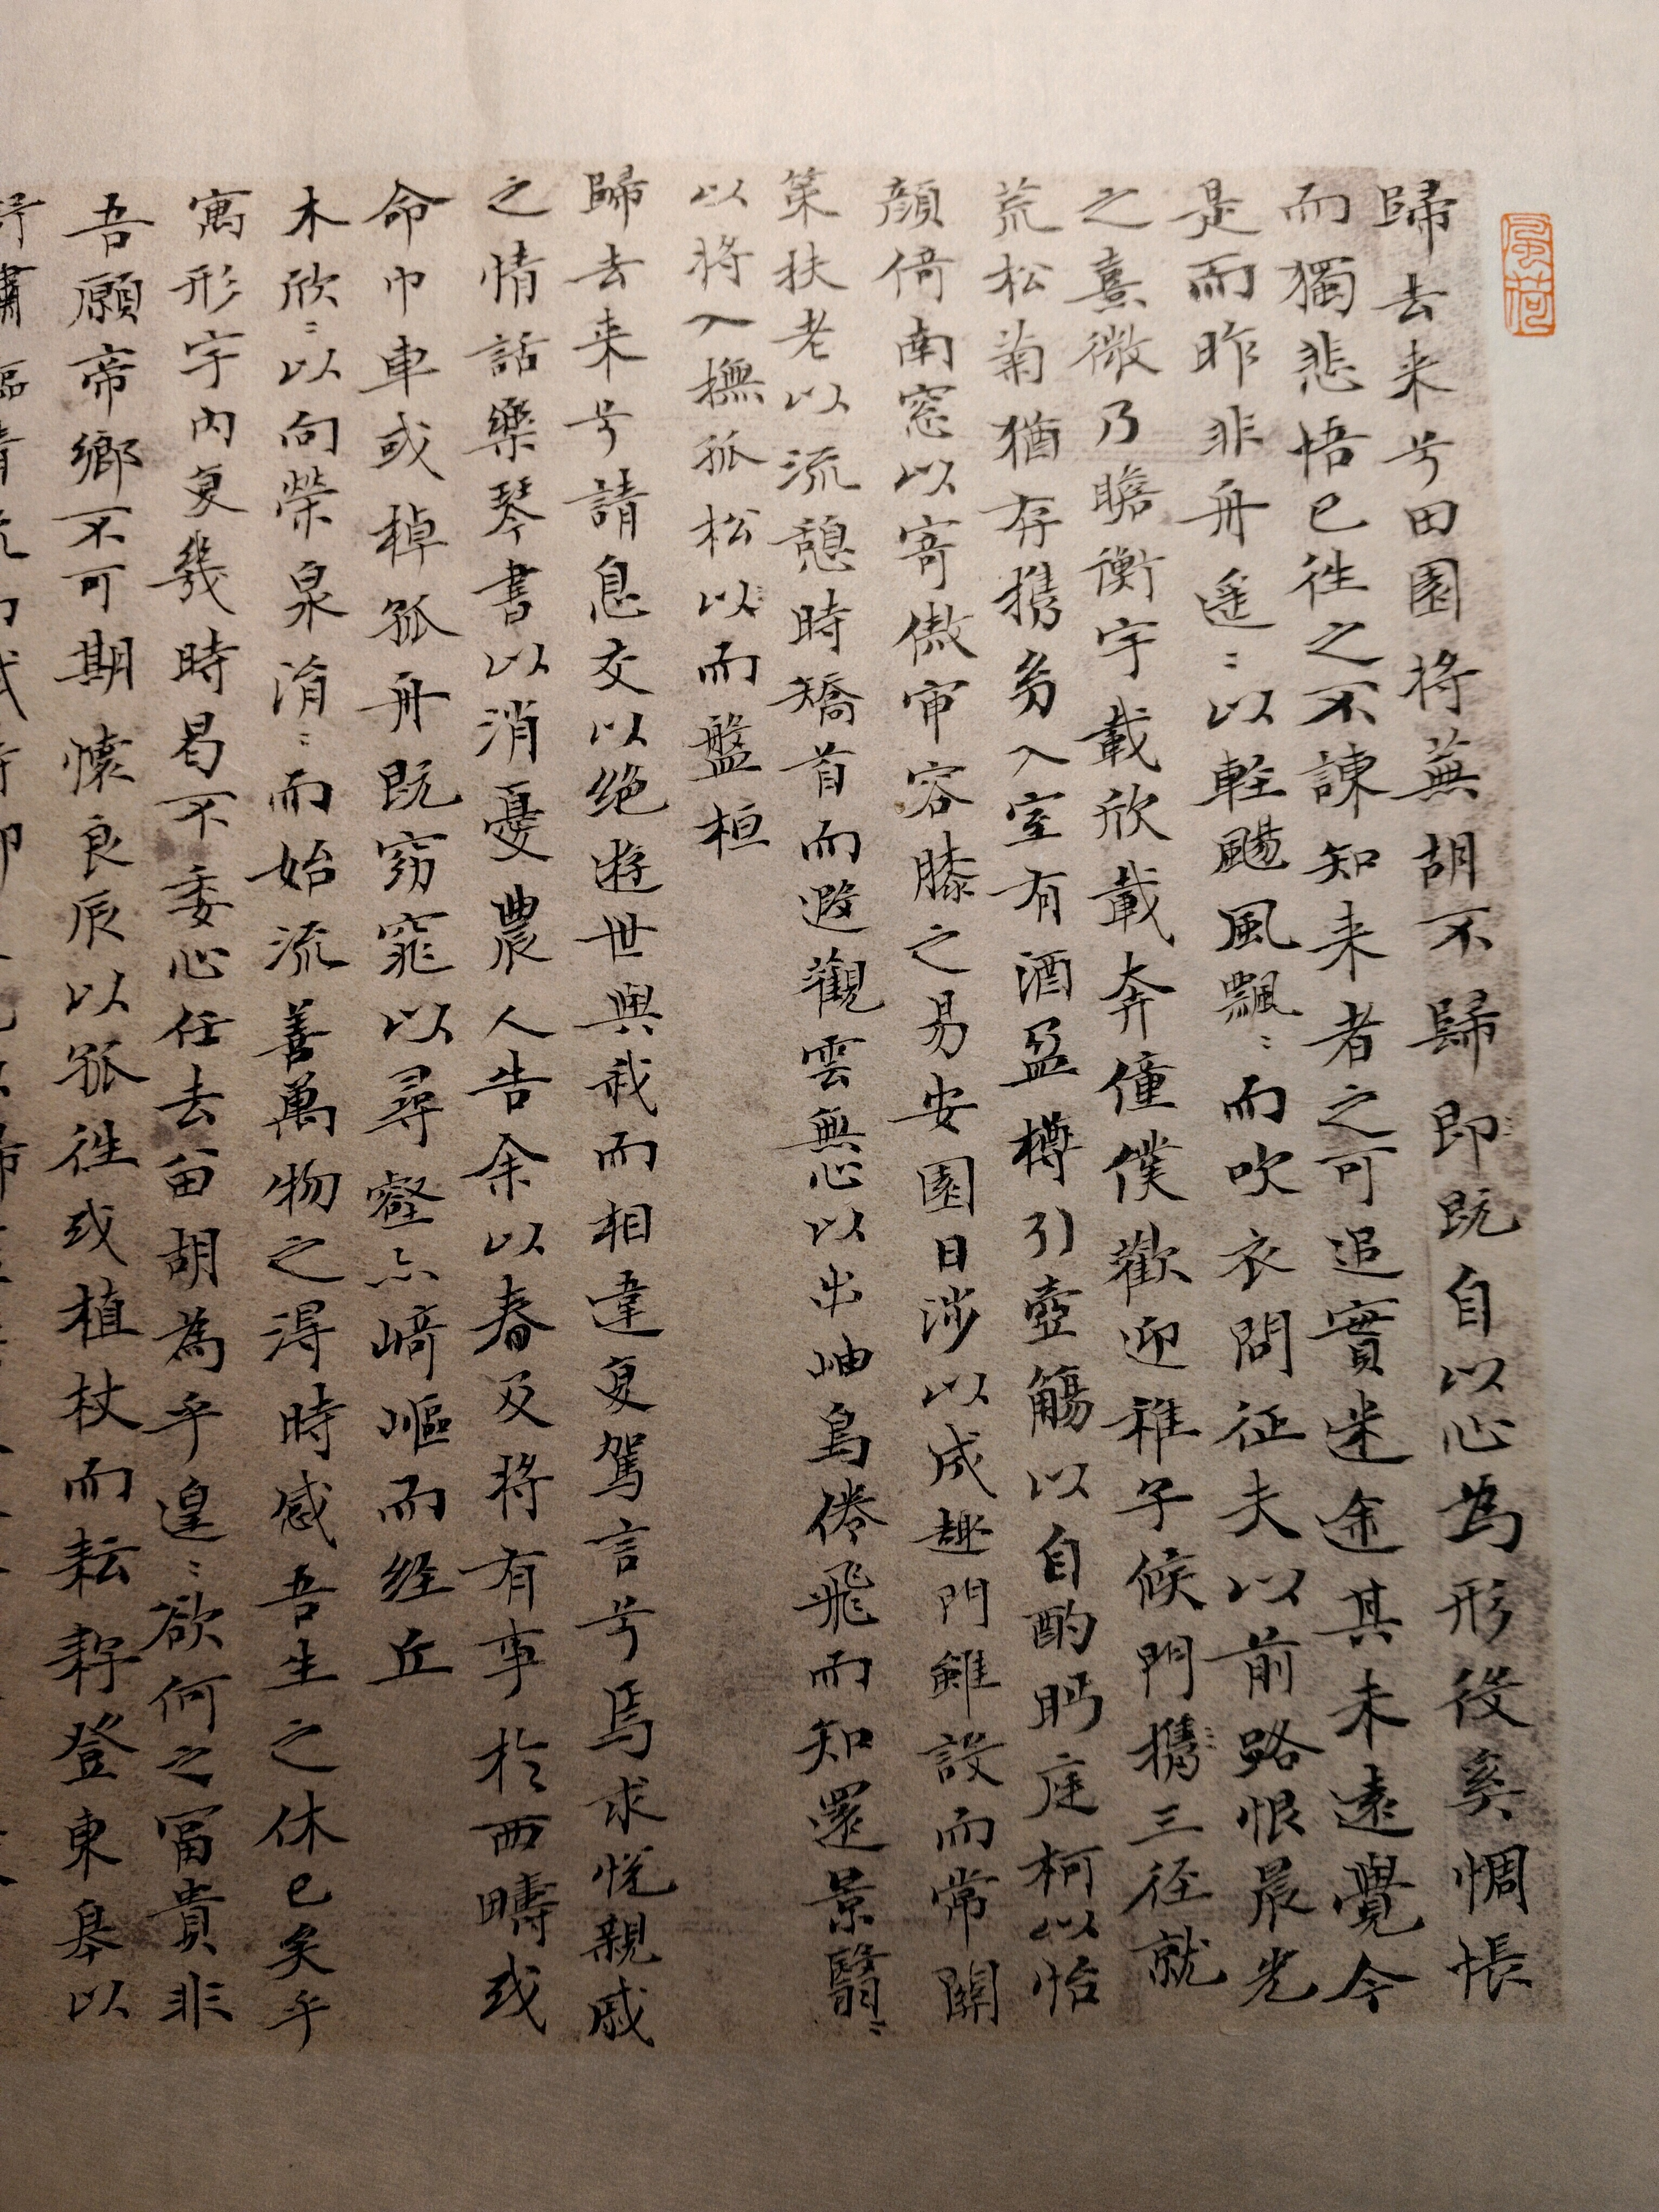 風荷
歸去来兮田園将蕪胡不歸即既自以心為形役奚惆悵
而獨悲悟已往之不諫知来者之可追實迷途其未遠覺今
是而昨非舟遥〻以軽颺風飄〻而吹衣問征夫以前路恨晨光
之熹微乃瞻衡宇載欣載奔僮僕歡迎稚子候門携三径就
荒松菊猶存携㓜入室有酒盈樽引壺觴以自酌眄庭柯以怡
顔倚南窓以寄傲審容膝之易安園日涉以成趣門雖設而常關
策扶老以流憩時矯首而遐觀雲無心以出岫鳥倦飛而知還景翳〻
以将入撫孤松以而盤桓
歸去来兮請息交以绝遊世與我而相違复駕言兮焉求悅親戚
之情話樂琴書以消憂農人告余以春及将有事於西疇或
命巾車或棹孤舟既窈窕以尋壑亦崎嶇而経丘
木欣〻以向榮泉涓〻而始流善萬物之得時感吾生之休已矣乎
寓形宇内复幾時曷不委心任去留胡為乎遑〻欲何之富貴非
吾願帝鄉不可期懷良辰以孤往或植杖而耘耔登東皋以